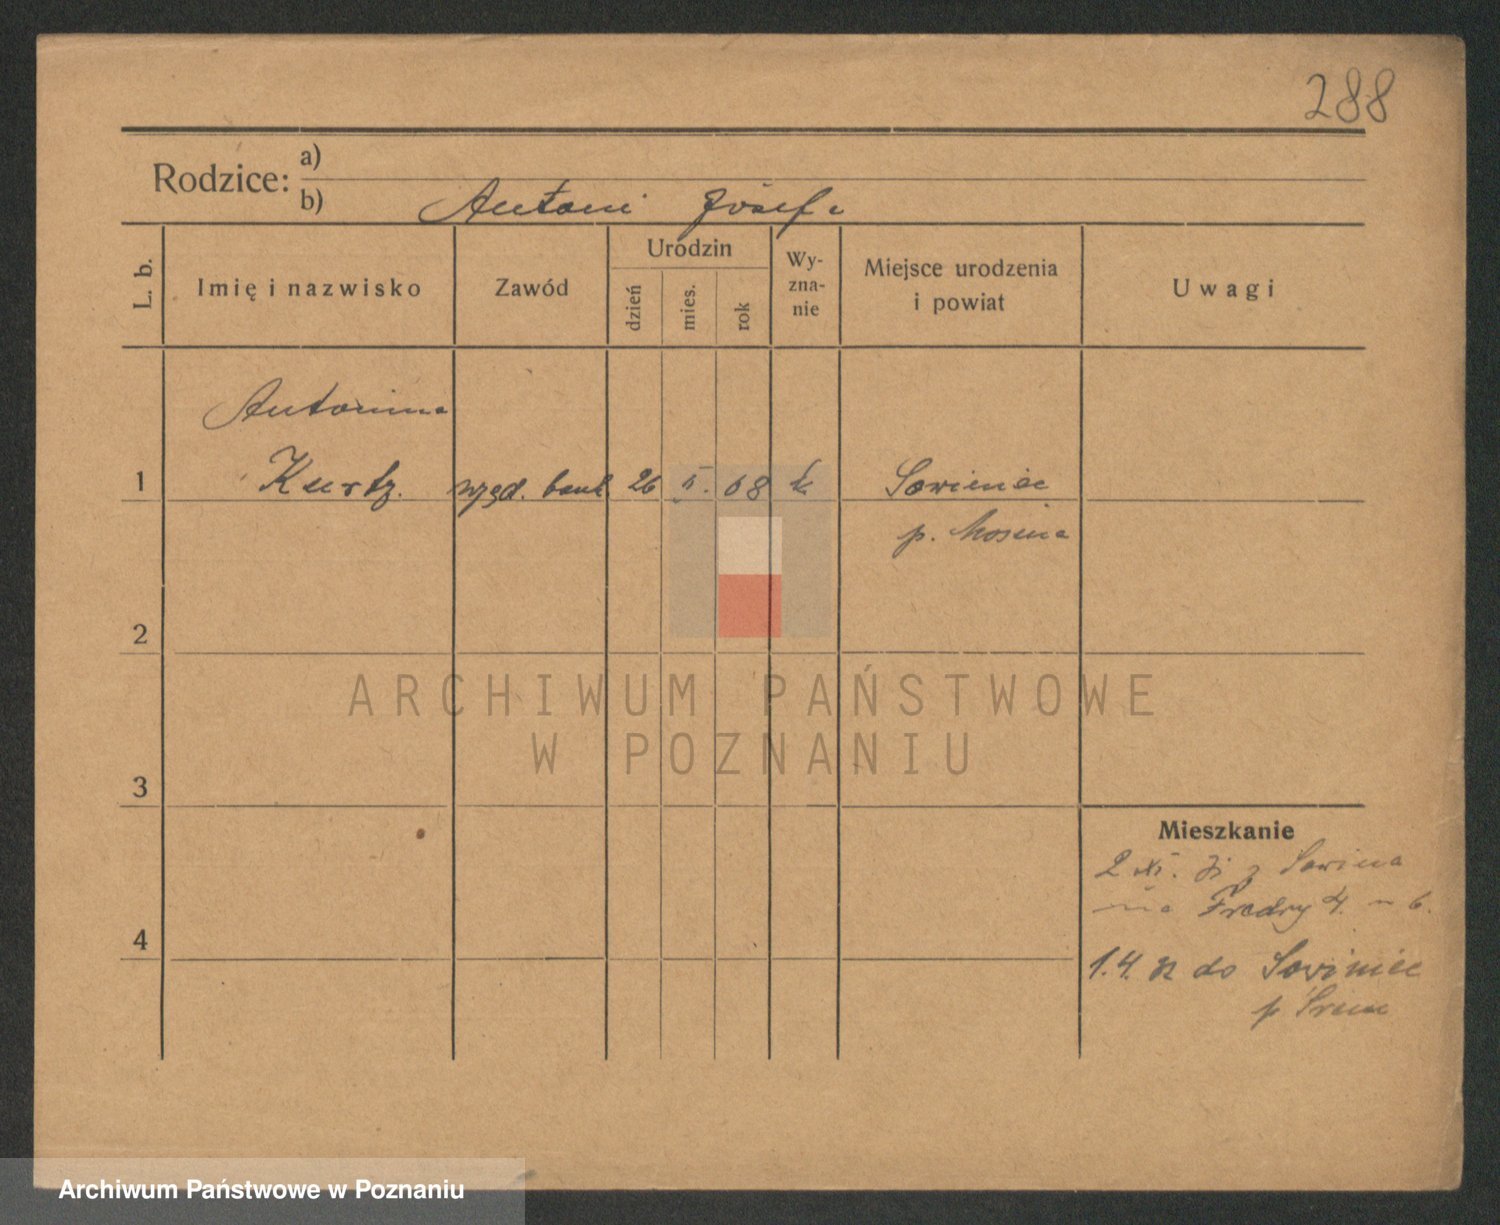 288
Rodzice: a)
b) Antoni Józefa
L. b.
Imię i nazwisko
Zawód
Urodzin
dzień
mies.
rok
Wy-
zna-
nie
Miejsce urodzenia
i powiat
Uwagi
Antonina
1 Kurtz. bank. 26 08 k. Sowiniec
p. Mosina
2
ARCHIWUM PAŃSTWOWE
W POZNANIU
3
Mieszkanie
2 XI. 31 z Sowińca
na Fredry 4. m 6.
4
1.4. 32 do Sowiniec
p Śrem
Archiwum Państwowe w Poznaniu